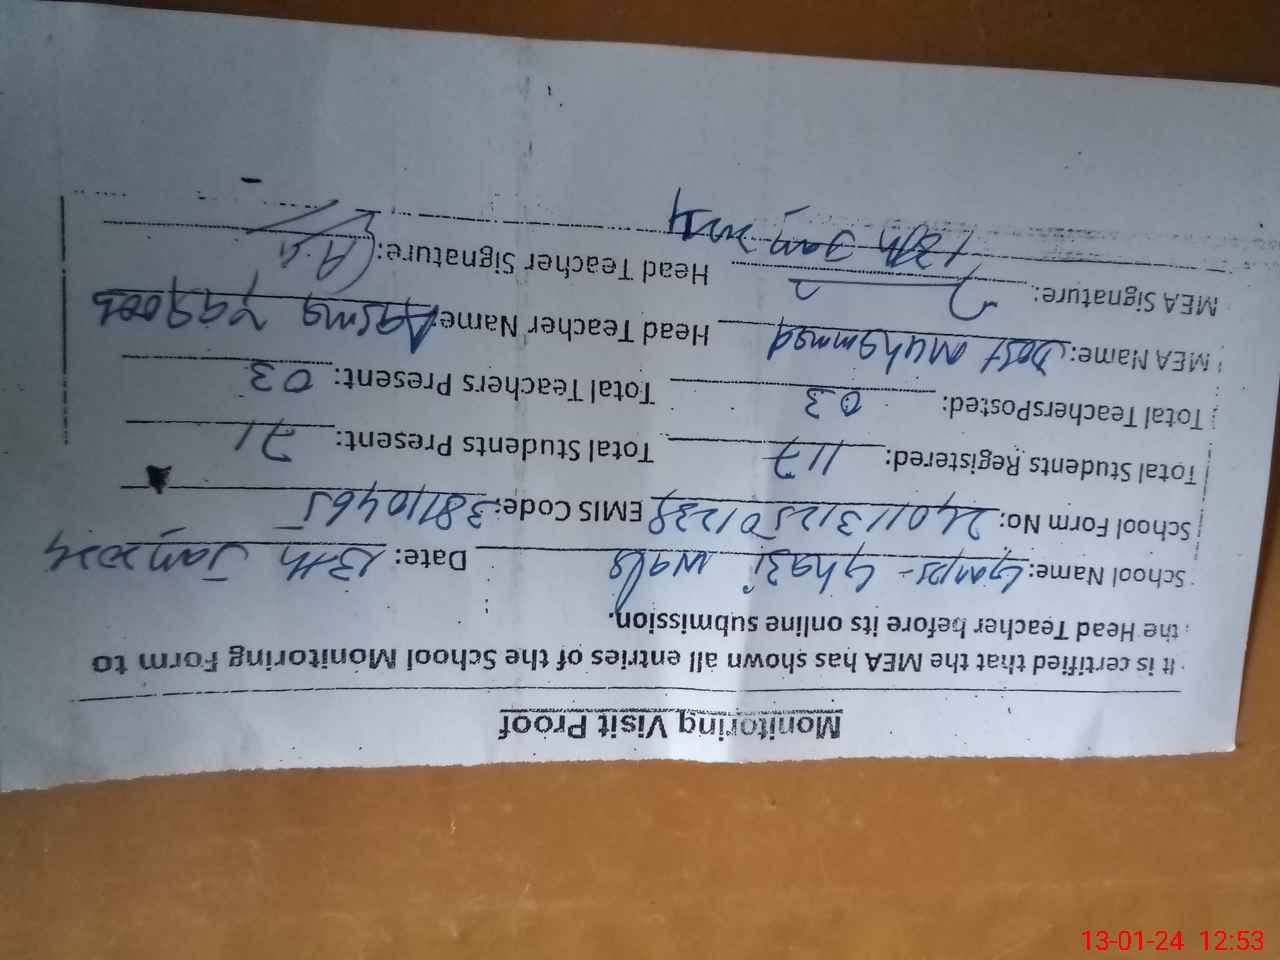 Monitoring Visit Proof
It is certified that the MEA has shown all entries of the School Monitoring Form to
the Head Teacher before its online submission.
School Name: Ghazi wala Date: 13th Jan 2024
School Form No: EMIS Code: 38110465
Total Students Registered: 117 Total Students Present: 71
Total TeachersPosted: 03 Total Teachers Present: 03
MEA Name: Dost Muhammad Head Teacher Name: Yaqoob
MEA Signature: Head Teacher Signature:
13th Jan 2024
13-01-24 12:53